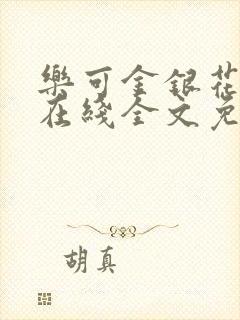 樂可金銀花
在綫全文免
胡真